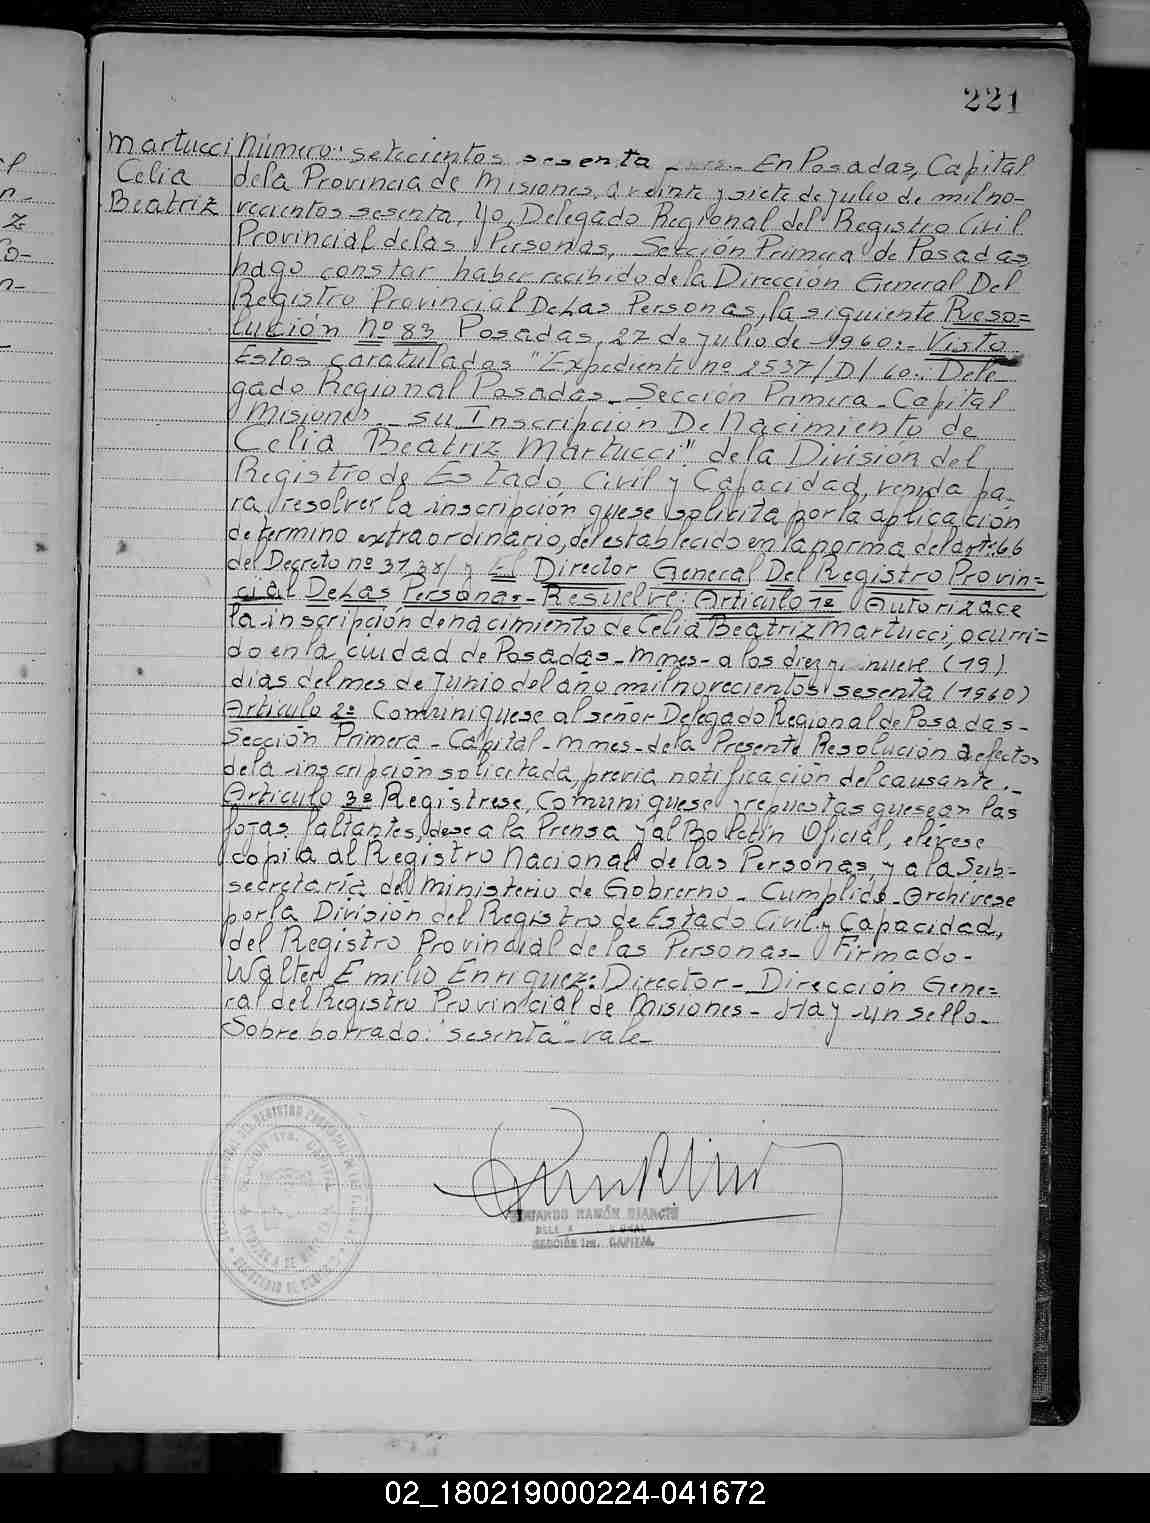 221
Martucci
Celia
Beatriz
Número: setecientos sesenta En Posadas, Capital
de la Provincia de Misiones, a veinte y siete de julio de mil no-
vecientos sesenta, Yo, Delegado Regional del Registro Civil
Provincial de las Personas, Sección Primera de Posadas,
hago constar haber recibido de la Dirección General Del
Registro Provincial De Las Personas, la siguiente Reso=
lución Nº 83 Posadas, 27 de julio de 1960:- Visto
Estos caratulados "Expediente nº 2537/D/60.: Dele-
gado Regional Posadas_ Sección Primera_ Capital
Misiones_ su Inscripción De Nacimiento de
Celia Beatriz Martucci". de la División del
Registro de Estado Civil y Capacidad, venida pa-
ra resolver la inscripción que se solicita por la aplicación
de termino extraordinario, del establecido en la norma del art: 66
del Decreto nº y El Director General Del Registro Provin=
cial De Las Personas_ Resuelve: Articulo 1º Autorizace
la inscripción de nacimiento de Celia Beatriz Martucci, ocurri=
do en la ciudad de Posadas_ Mnes_ a los diez y nueve (19)
dias del mes de Junio del año mil novecientos sesenta (1960)
Articulo 2º Comuniquese al señor Delegado Regional de Posadas_
Sección Primera_ Capital_ Mnes_ de la Presente Resolución a efectos
de la inscripción solicitada, previa notificación del causante._
Articulo 3º Registrese, Comuniquese y repuestas que sean las
fojas faltantes, dese a la Prensa y al Boletin Oficial, elévese
copia al Registro Nacional de las Personas, y a la Sub=
secretaría del Ministerio de Gobierno_ Cumplido_ Archivese
por la División del Registro de Estado Civil y Capacidad,
del Registro Provincial de las Personas_ Firmado_
Walter Emilio Enriquez: Director_ Dirección Gene=
ral del Registro Provincial de Misiones_ Hay un sello_
Sobre borrado: "sesenta" vale_
RAMÓN BIANCHI
SECCIÓN 1ra. CAPITAL
02_180219000224-041672